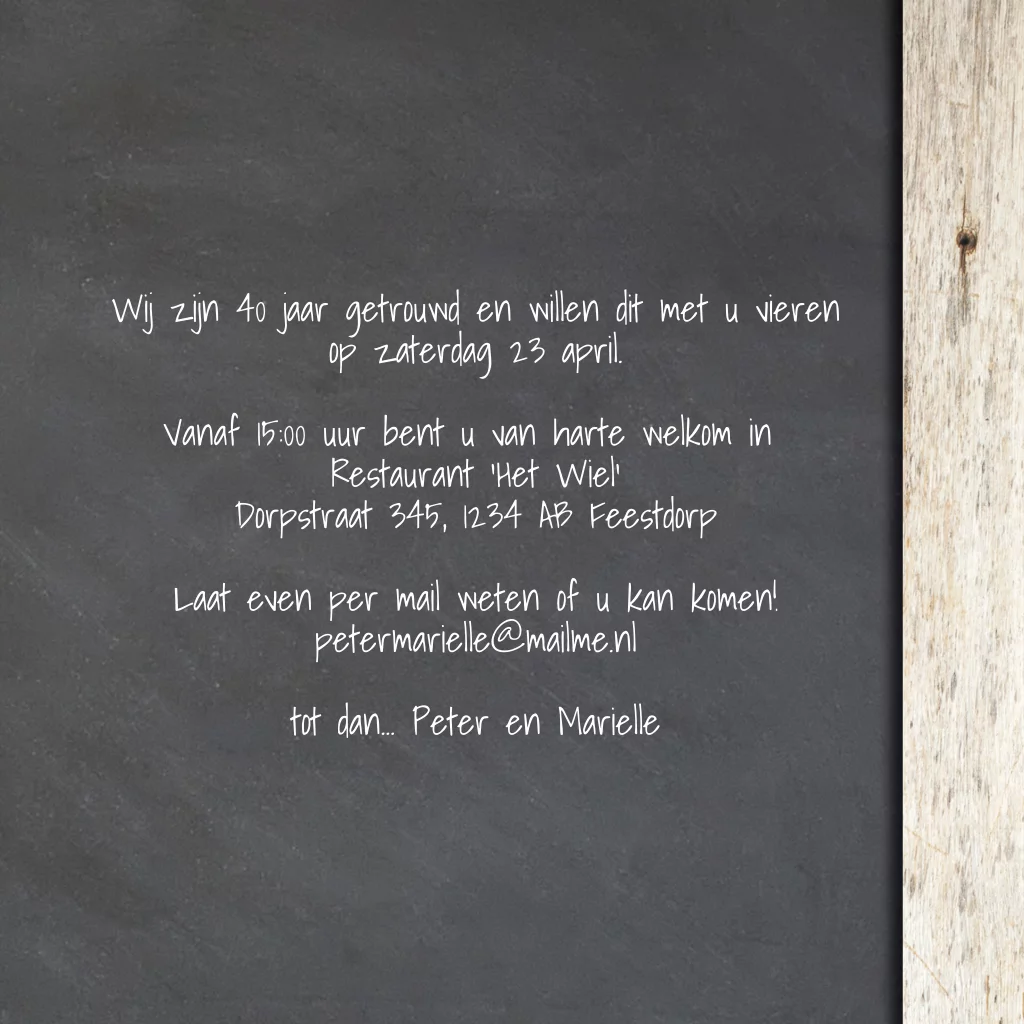 Wij zijn 40 jaar getrouwd en willen dit met u vieren
op zaterdag 23 april.
Vanaf 15:00 uur bent u van harte welkom in
Restaurant 'Het Wiel'
Dorpstraat 345, 1234 AB Feestdorp
Laat even per mail weten of u kan komen!
petermarielle@mailme.nl
tot dan... Peter en Marielle